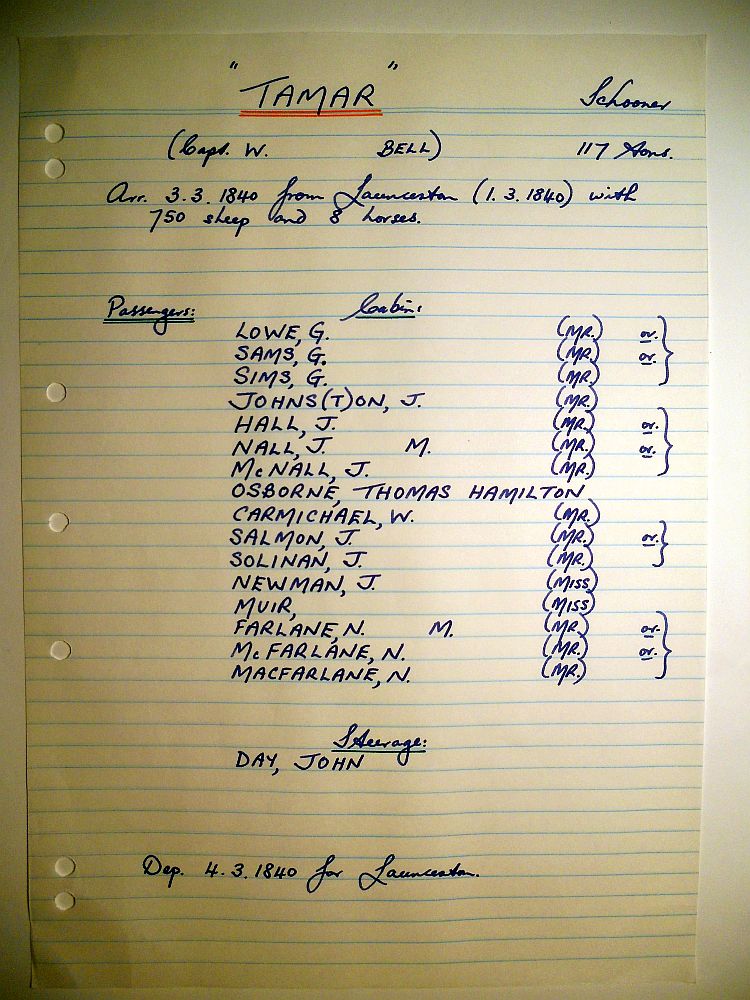 "TAMAR" Schooner
(Capt. W. BELL) 117 tons.
Arr. 3.3.1840 from Launceston (1.3.1840) with
750 sheep and 8 horses.
Passengers: Cabin:
LOWE, G. (MR.) or.
SAMS, G. (MR.) or.
SIMS, G. (MR.)
JOHNS(T)ON, J. (MR.)
HALL, J. (MR.) or.
NALL, J. M. (MR.) or.
McNALL, J. (MR.)
OSBORNE, THOMAS HAMILTON
CARMICHAEL, W. (MR.)
SALMON, J. (MR.) or.
SOLINAN, J. (MR.)
NEWMAN, J. (MISS)
MUIR, (MISS)
FARLANE, N. M. (MR.) or.
McFARLANE, N. (MR.) or.
MACFARLANE, N. (MR.)
Steerage:
DAY, JOHN
Dep. 4.3.1840 for Launceston.